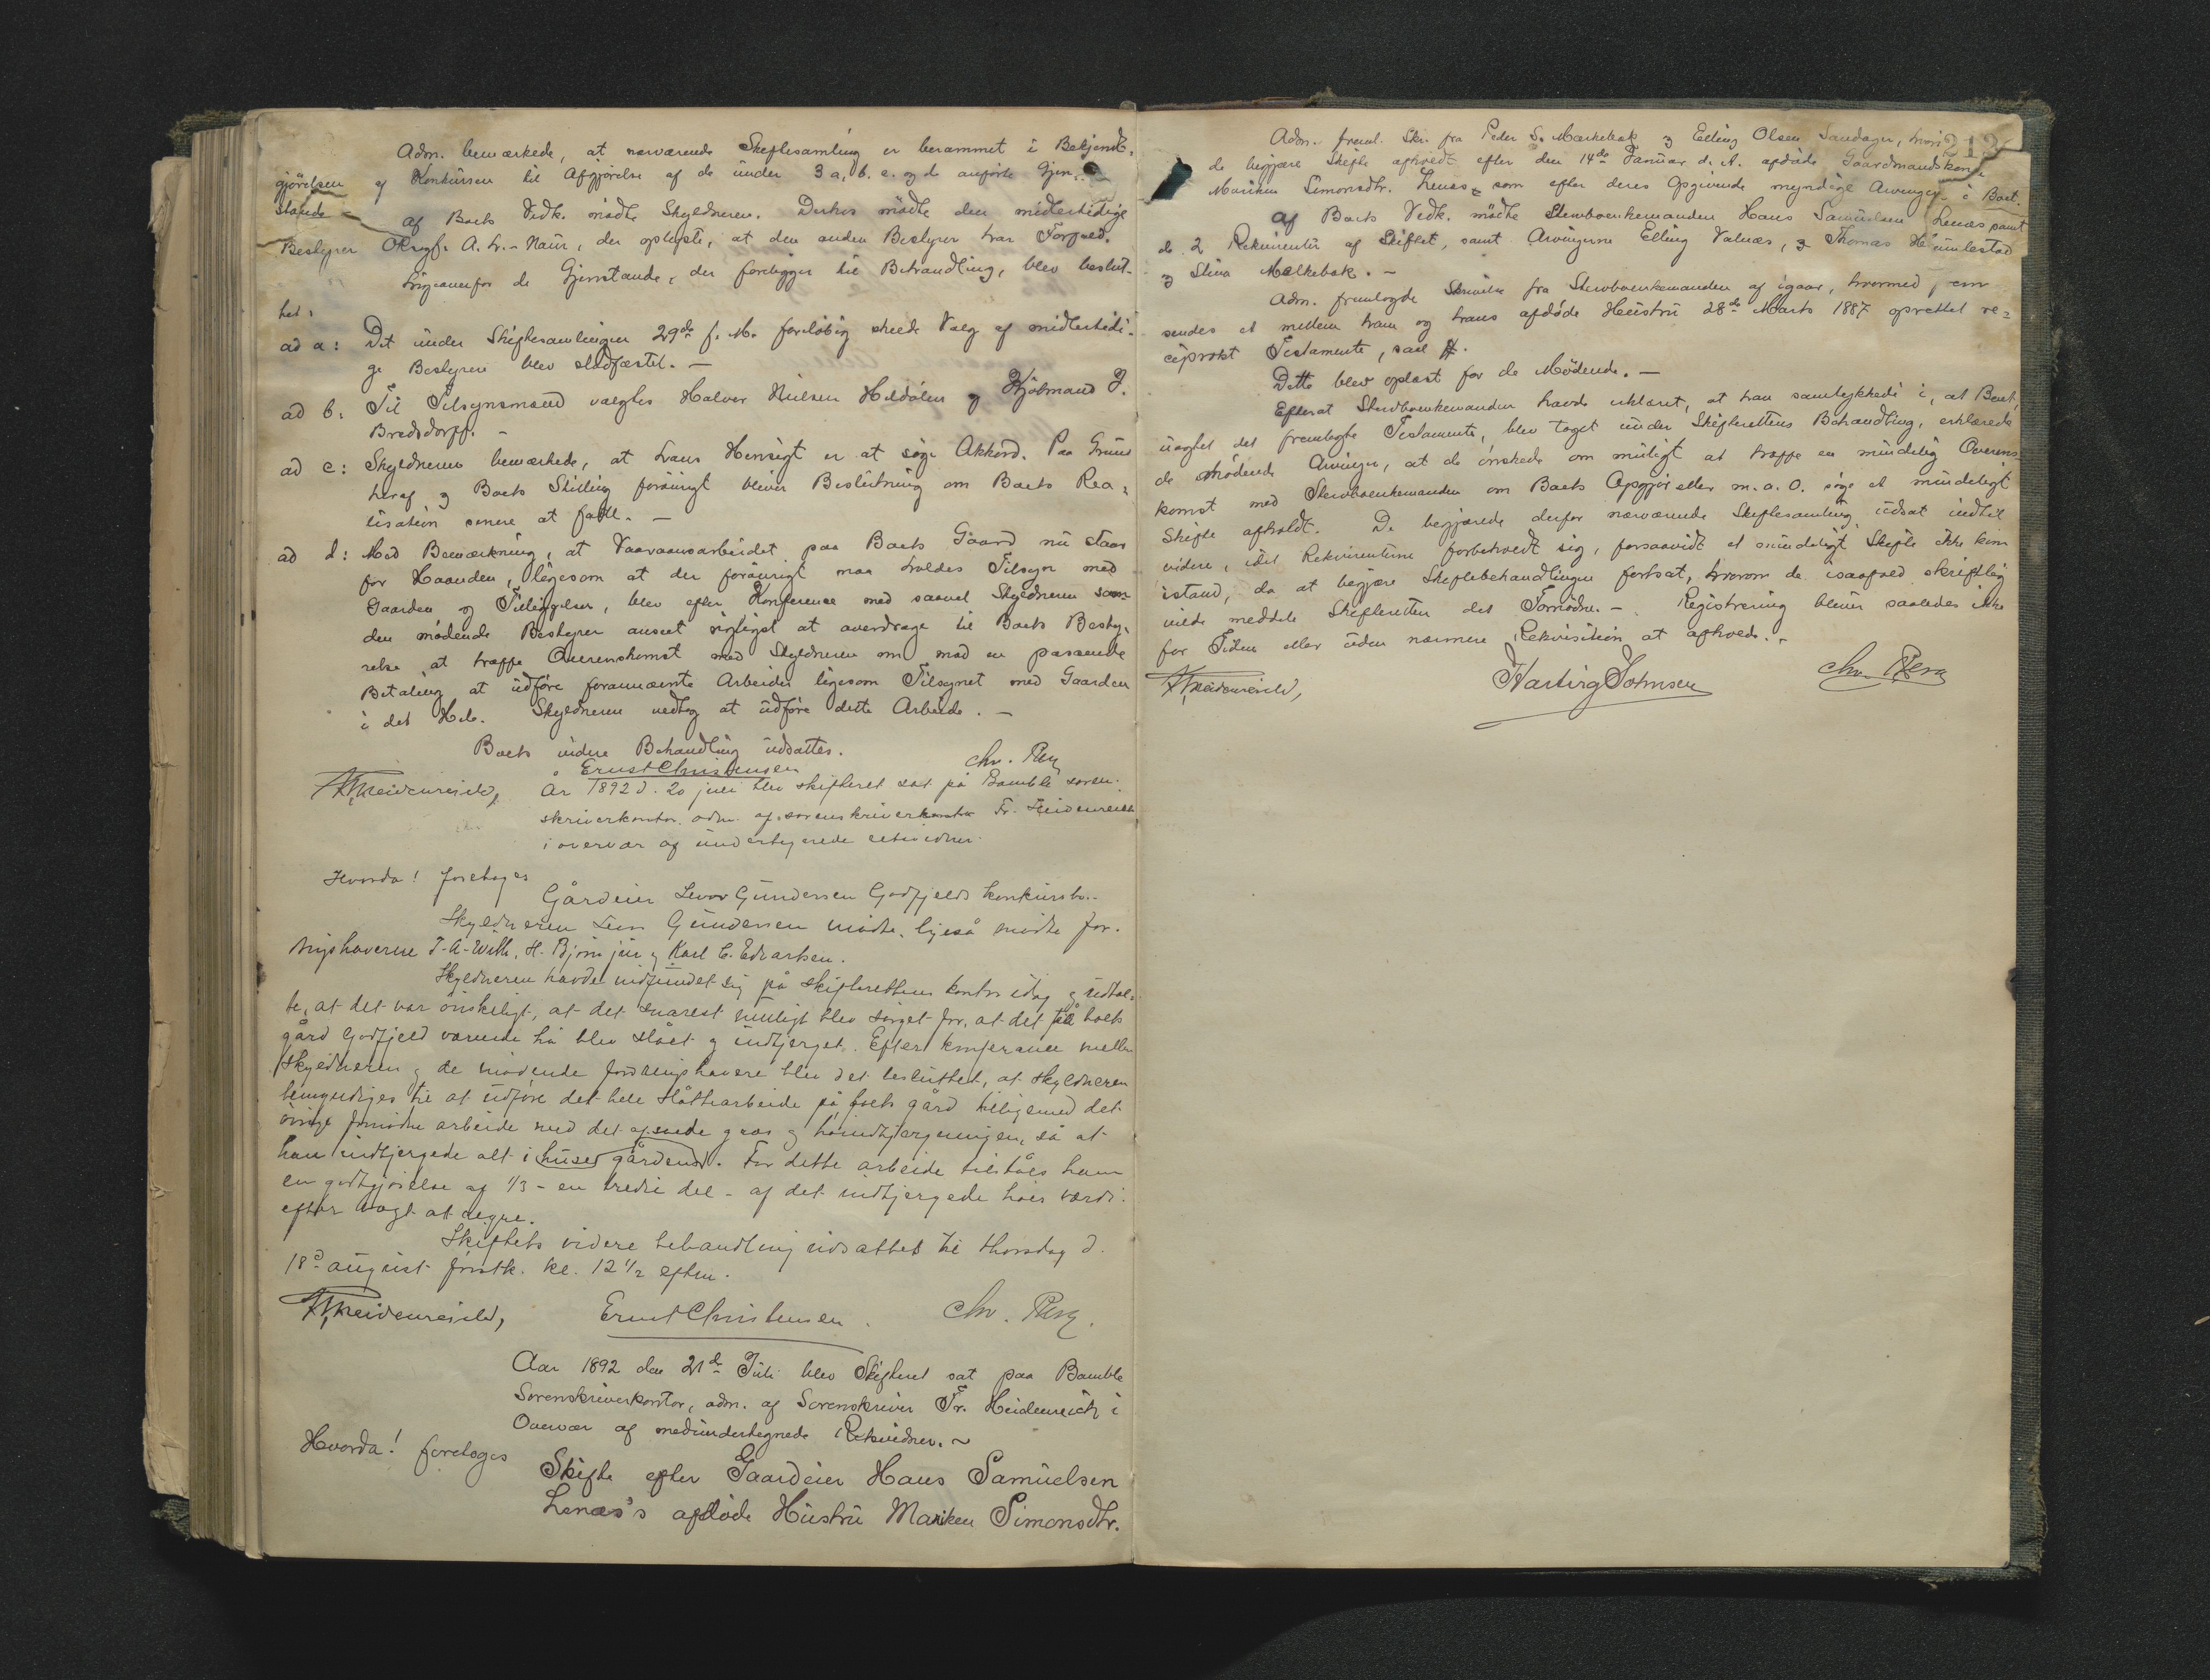 Adm. bemærkede, at nærværende Skiftesamling er berammet i Bekjendt-
gjørelsen af Konkursen til Afgjørelse af de under 3 a, b. c. og d. anførte Gjen-
stande –
af Boets Vedk. mødte Skyldneren. Derhos mødte den midlertidige
Bestyrer A. L. Naur, der oplyste, at den anden Bestyrer har Forfald.
de Gjenstande, der foreligger til Behandling, blev beslut-
tet:
ad a: Det under Skiftesamlingen 29de f. M. foreløbig skeede Valg af midlertidi-
ge Bestyrere blev stadfæstet. –
ad b: Til Tilsynsmænd valgtes Halvor Nielsen Heldalen og Kjøbmand J.
Bredsdorff. –
ad c: Skyldneren bemærkede, at hans Hensigt er at søge Akkord. Paa Grund
heraf og Boets Stilling forøvrigt bliver Beslutning om Boets Rea-
lisation senere at fatte. –
ad d: Med Bemærkning, at Vaaraansarbeidet paa Boets Gaard nu staar
for Haanden, ligesom at der forøvrigt maa holdes Tilsyn med
Gaarden og Tilliggelser, blev efter Konference med saavel Skyldneren som
den mødende Bestyrer anseet rigtigst at overdrage til Boets Besty-
relse at træffe Overenskomst med Skyldneren om mod en passende
Betaling at udføre forannævnte Arbeider ligesom Tilsynet med Gaarden
i det Hele. Skyldneren vedtog at udføre dette Arbeide. –
Boets videre Behandling udsattes.
Fr. Heidenreich, Ernst Christensen Chr.
År 1892 d. 20 juli blev skifteret sat på Bamble soren-
skriverkontor. adm. af sorenskriver Fr. Heidenreich
i overvær af undertegnede retsvidner.
Hvorda! foretoges
Gårdeier Levor Gundersen Godfjelds konkursbo.
Skyldneren Levor Gundersen mødte, ligeså mødte for-
dringshaverne T. A. Wille, H. Bjørn jun og Karl C. Edvartsen.
Skyldneren havde indfundet sig på skifterettens kontor idag og udtal-
te, at det var ønskeligt, at det snarest muligt blev sørget for, at det på boets
gård Godfjeld værende hø blev slået og indbjerget. Efter konferance mellem
skyldneren og de mødende fordringshavere blev det besluttet, at skyldneren
bemyndiges til at udføre det hele slåttearbeide på boets gård tilligemed det
øvrige fornødne arbeide med det afsaade græs og høindbjergningen, så at
han indbjergede alt i gårdens huse. For dette arbeide tilståes ham
en godtgjørelse af 1/3 – en tredie del – af det indbjergede høis værdi
efter vægt at regne.
Skiftets videre behandling udsattes til thorsdag d.
18d august førstk. kl. 12 1/2 efterm.
Fr. Heidenreich, Ernst Christensen. Chr.
Aar 1892 den 21de Juli blev Skifteret sat paa Bamble
Sorenskriverkontor, adm. af Sorenskriver Fr. Heidenreich i
Overvær af medundertegnede Retsvidner. ~
Hvorda! foretoges
Skifte efter Gaardeier Hans Samuelsen
Lenæs's afdøde Hustru Mariken Simonsdtr.
212
Adm. freml. Skr. fra Peder S. Mælkebak og Elling Olsen Sandager, hvori
de begjære Skifte afholdt efter den 14de Januar d. A. afdøde Gaardmandskone
Mariken Simonsdtr. Lenæs, som efter deres Opgivende myndige Arvinger i Boet.
af Boets Vedk. mødte Sterboenkemanden Hans Samuelsen Lenæs samt
de 2 Rekvirenter af Skiftet, samt Arvingerne Elling Valnæs, og Thomas
og Stina Mælkebak. –
Adm. fremlagde Skrivelse fra Sterboenkemanden af igaar, hvormed
sendes et mellem ham og hans afdøde Hustru 28de Marts 1887 oprettet re-
ciprokt Testamente, saal.
Dette blev oplæst for de Mødende. –
Efterat Sterboenkemanden havde erklæret, at han samtykkede i, at Boet,
uagtet det fremlagte Testamente, blev taget under Skifterettens Behandling, erklærede
de mødende Arvinger, at de ønskede om muligt at træffe en mindelig Overens-
komst med Sterboenkemanden om Boets Opgjør eller m. a. O. søge et mindeligt
Skifte afholdt. De begjærede derfor nærværende Skiftesamling udsat indtil
videre, idet Rekvirenterne forbeholdt sig, forsaavidt et mindeligt Skifte ikke kom
istand, da at begjære Skiftebehandlingen fortsat, hvorom de isaafald skriftlig
vilde meddele Skifteretten det Fornødne. – Registrering bliver saaledes ikke
for Tiden eller uden nærmere Rekvisition at afholde. –
Fr. Heidenreich, Hartvig Johnsen Chr.